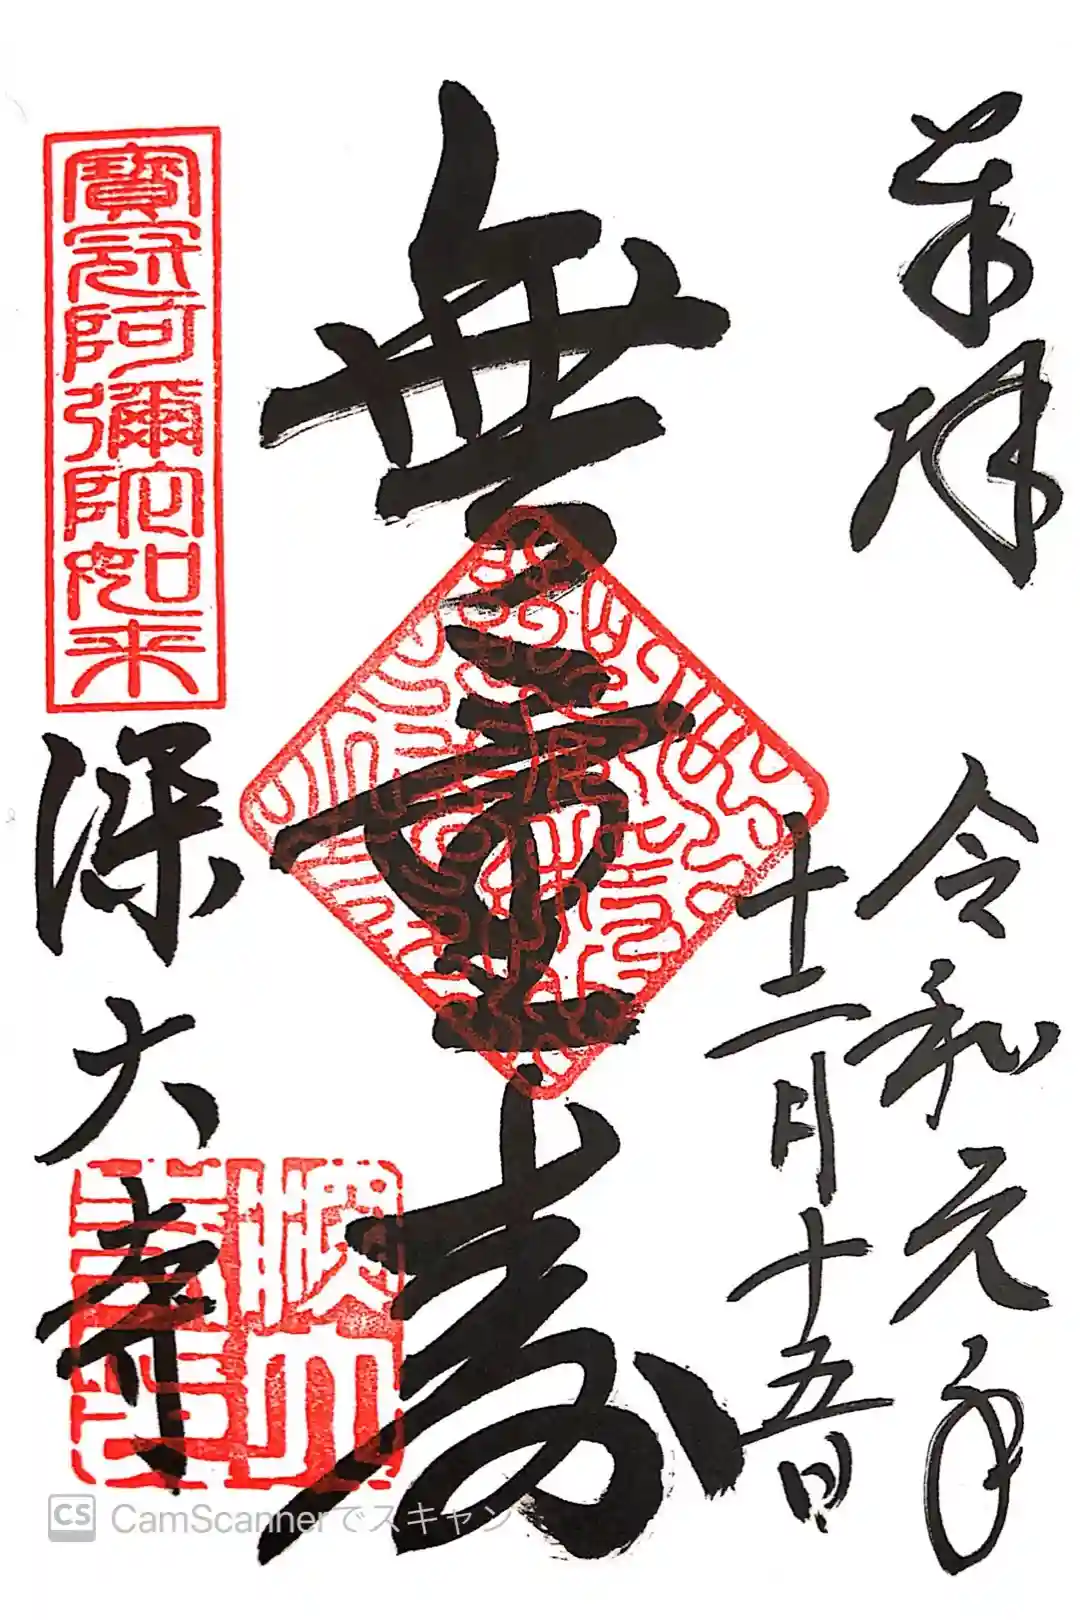 奉拝
令和元年
十二月十五日
無量寿
寶冠阿彌陀如来
深大寺
CS CamScannerでスキャン